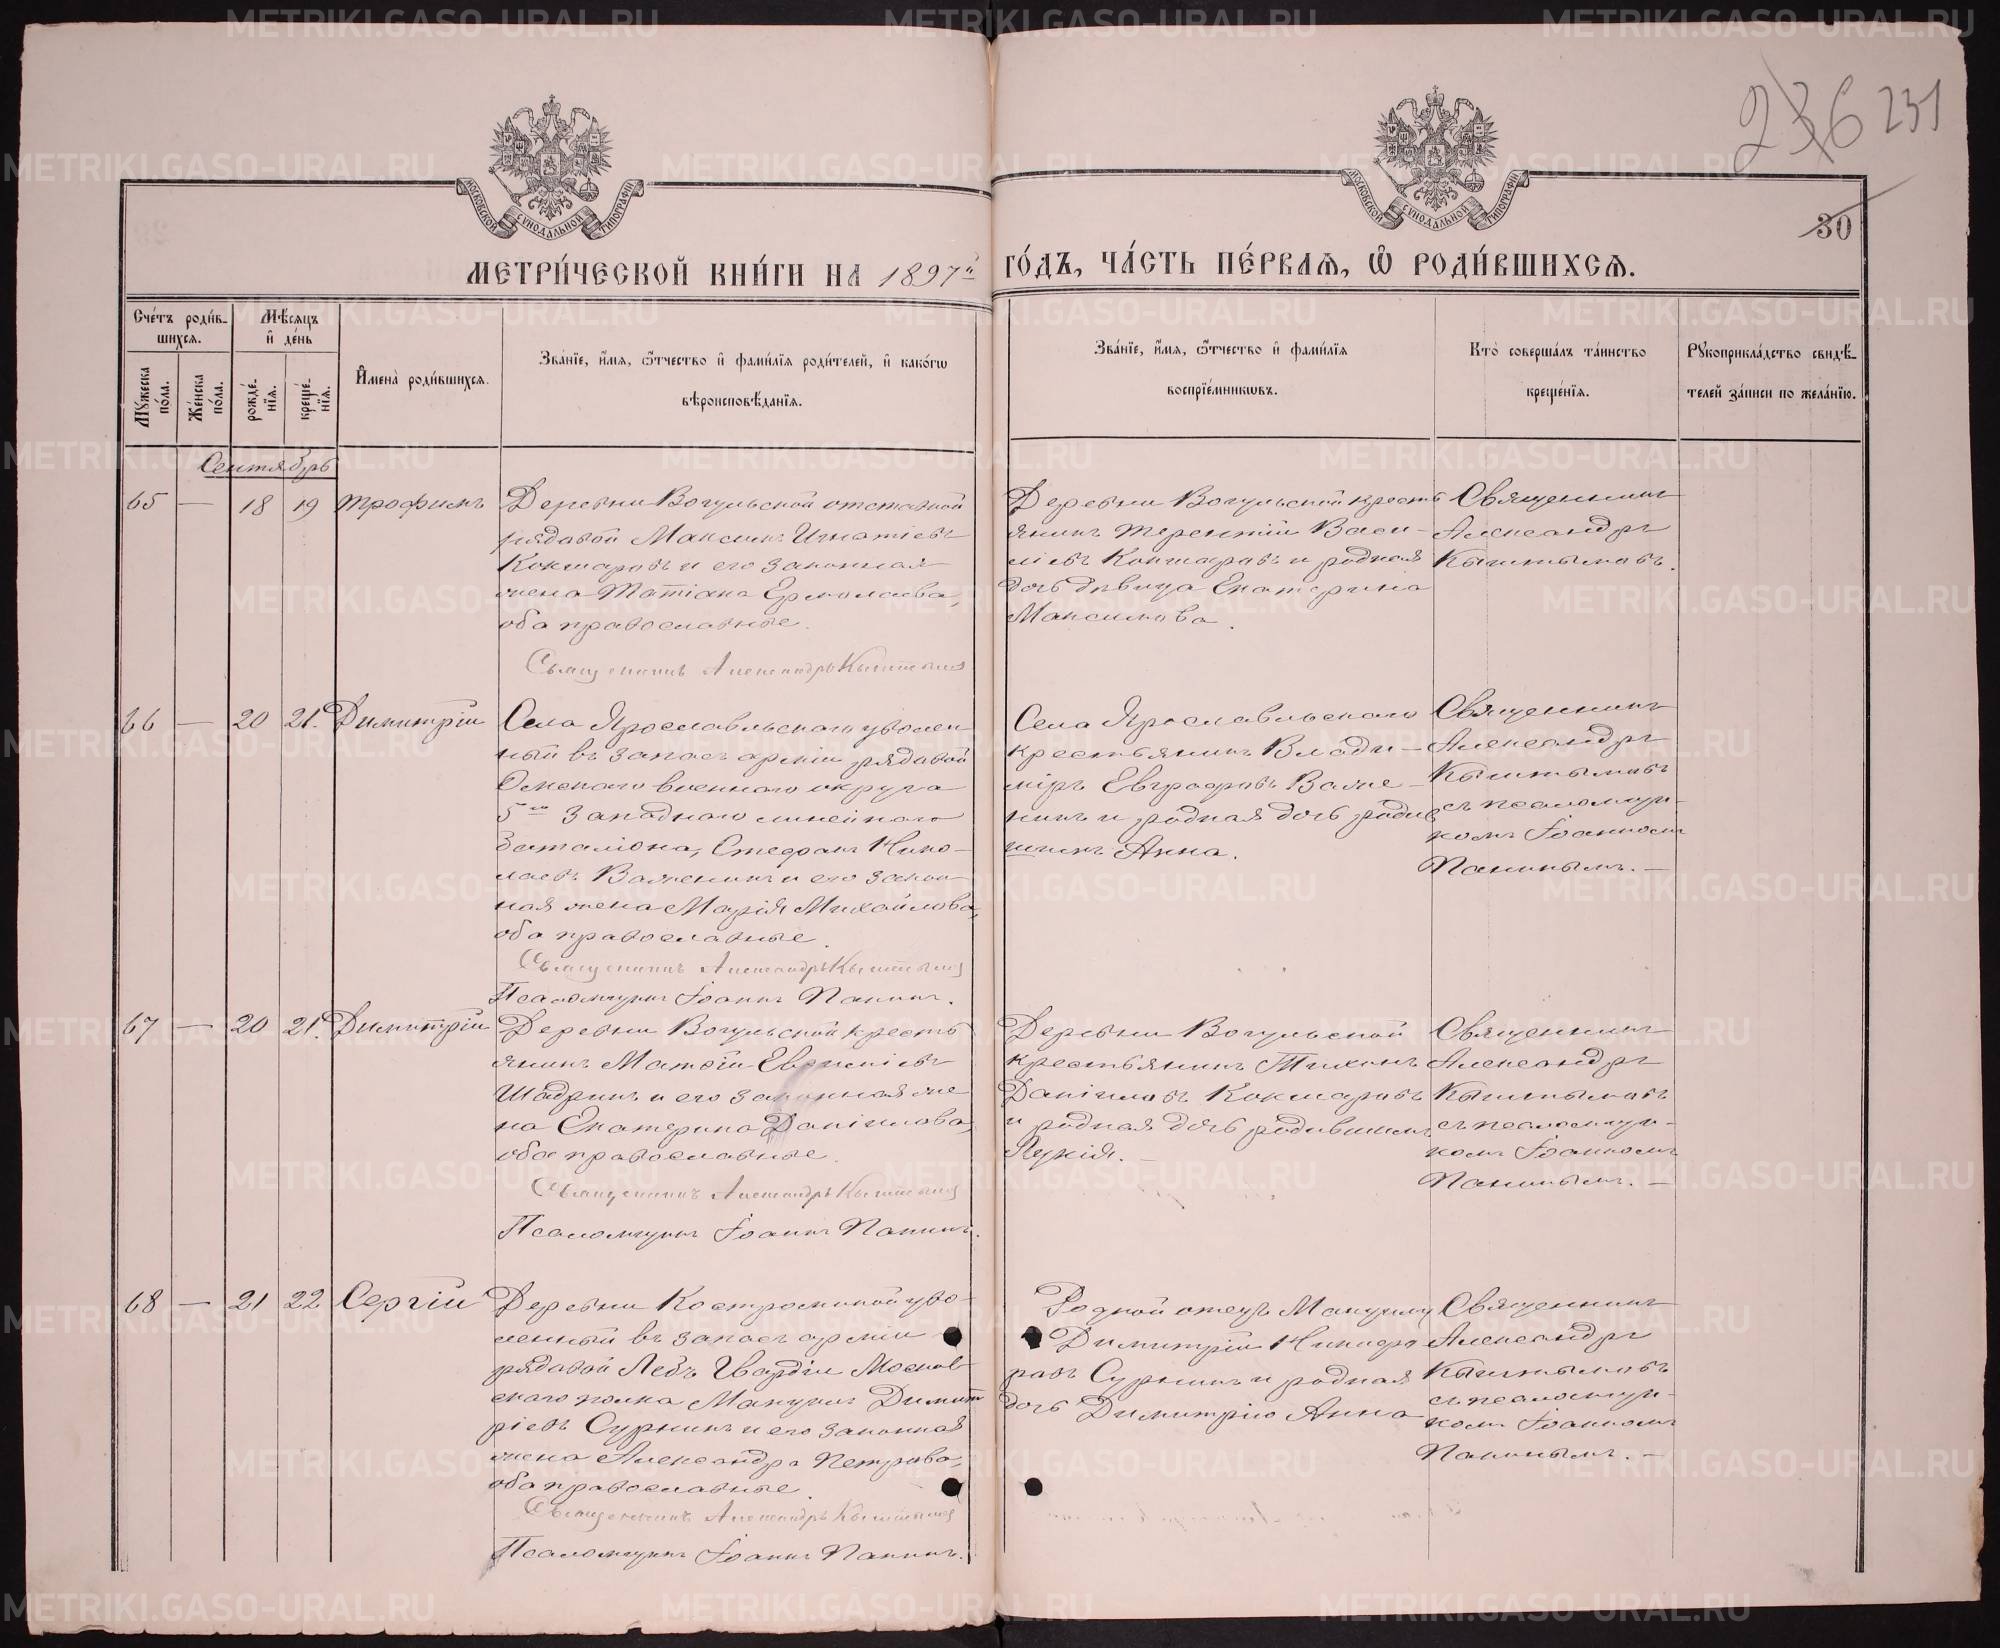 236 231
МОСКОВСКОЙ СѴНОДАЛЬНОЙ ТИПОГРАФІИ
МОСКОВСКОЙ СѴНОДАЛЬНОЙ ТИПОГРАФІИ
30
МЕТРИ́ЧЕСКОЙ КНИ́ГИ НА 1897й ГО́ДЪ, ЧА́СТЬ ПЕ́РВАѦ, Ѡ РОДИ́ВШИХСѦ.
Сче́тъ роди́в-
шихся.
Мѣ́сяцъ
и҆ де́нь
Му́жеска
по́ла.
Же́нска
по́ла.
рожде́-
нїя.
креще́-
нїя.
И҆мена̀ роди́вшихся.
Зва́нїе, и҆́мя, ѻ҆́тчество и҆ фами́лїя роди́телей, и҆ како́гѡ
вѣроисповѣ́данїя.
Зва́нїе, и҆́мя, ѻ҆́тчество и҆ фами́лїя
воспрїе́мникѡвъ.
Кто̀ соверша́лъ та́инство
креще́нїя.
Рукоприкла́дство свидѣ́-
телей за́писи по жела́нїю.
Сентябрь
65 — 18 19 Трофимъ
Деревни Вогульской отставной
рядовой Максимъ Игнатіевъ
Кокшаровъ и его законная
жена Татіана Ермолаева,
оба православные.
Священникъ Александръ Кыштымовъ
Деревни Вогульской кресть
янинъ Терентій Васи-
ліевъ Кокшаровъ и родная
дочь дѣвица Екатерина
Максимова.
Священникъ
Александръ
Кыштымовъ.
66 — 20 21. Димитрій
Села Ярославльскаго уволен
ный въ запасъ арміи рядовой
Омскаго военнаго округа
5го Западнаго линейнаго
баталіона, Стефанъ Нико-
лаевъ Важенинъ и его закон
ная жена Марія Михайлова,
оба православные.
Священникъ Александръ Кыштымовъ
Псаломщикъ Іоаннъ Панинъ.
Села Ярославльскаго
крестьянинъ Влади-
міръ Евграфовъ Важе-
нинъ и родная дочь родив
шихъ Анна.
Священникъ
Александръ
Кыштымовъ
съ псаломщи-
комъ Іоанномъ
Панинымъ. —
67 — 20 21. Димитрій
Деревни Вогульской кресть
янинъ Матѳій Евсигніевъ
Шадринъ и его законная же
на Екатерина Даніилова,
оба православные.
Священникъ Александръ Кыштымовъ
Псаломщикъ Іоаннъ Панинъ.
Деревни Вогульской
крестьянинъ Тихонъ
Даніиловъ Кокшаровъ
и родная дочь родившихъ
Лукія. —
Священникъ
Александръ
Кыштымовъ
съ псаломщи-
комъ Іоанномъ
Панинымъ. —
68 — 21 22 Сергій
Деревни Костроминой уво-
ленный въ запасъ арміи
рядовой Лебъ Гвардіи Москов
скаго полка Мануилъ Димит
ріевъ Суркинъ и его законная
жена Александра Петрова,
оба православные.
Священникъ Александръ Кыштымовъ
Псаломщикъ Іоаннъ Панинъ.
Родной отецъ Мануилу
Димитрій Никифо
ровъ Суркинъ и родная
дочь Димитрію Анна
Священникъ
Александръ
Кыштымовъ
съ псаломщи-
комъ Іоанномъ
Панинымъ. —
METRIKI.GASO-URAL.RU